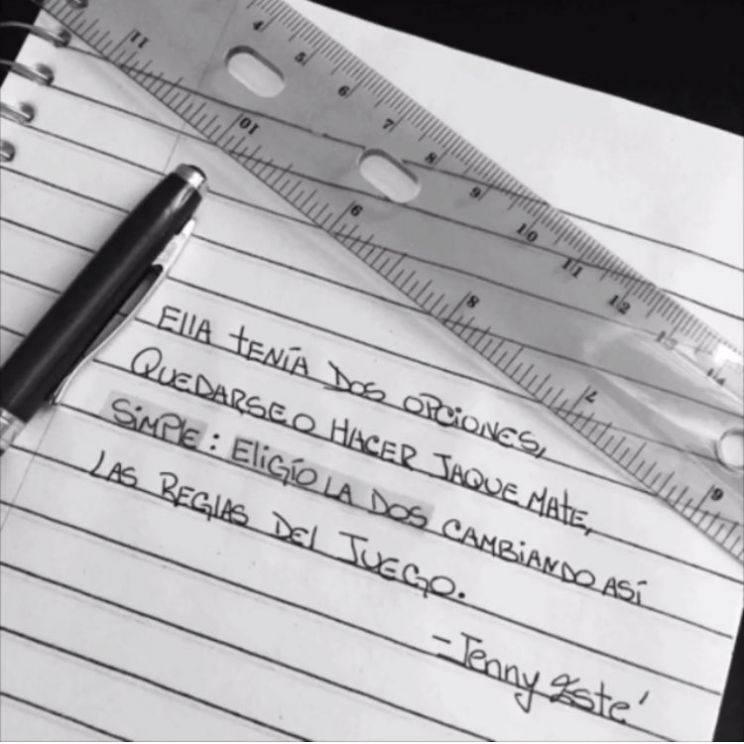 4 5 6 7 8 9 10 11 12 13 14
11 10 9 8 7 6
EllA TENÍA DOS OPCIONES,
QUEDARSE O HACER JAQUE MATE,
SiMPlE: EliGÍO LA DOS CAMBiANDO ASÍ
LAS REGlAS DEl JUEGO.
-Jenny Esté